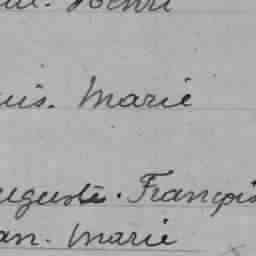 Henri
uis. Marie
uguste. François
an. Marie